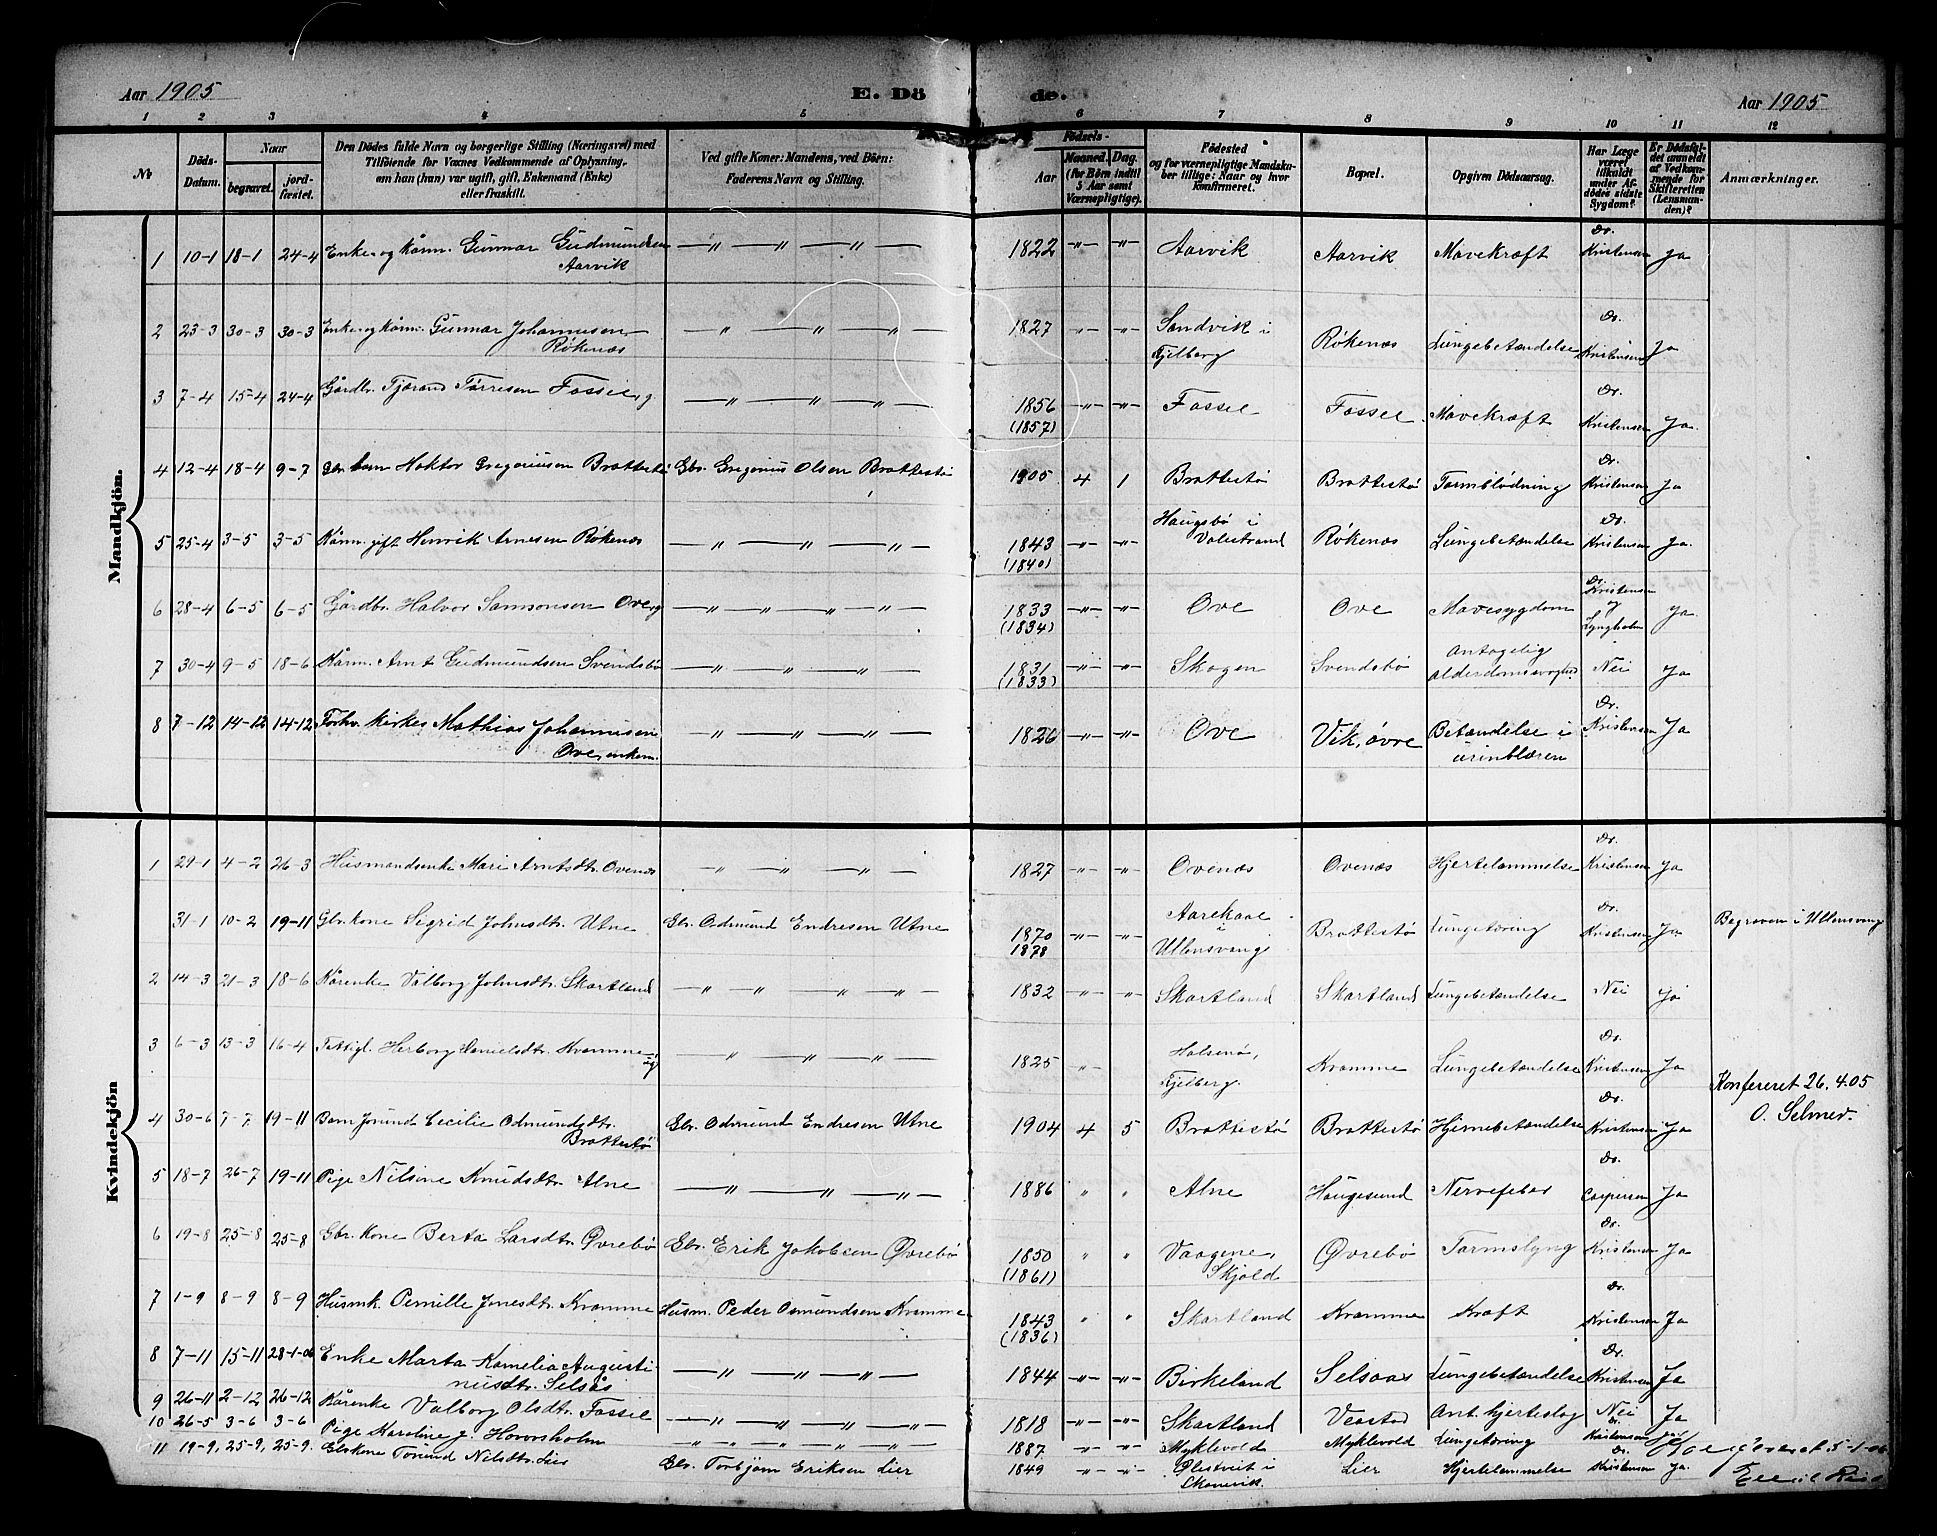 Aar 1905 E. Dö de. Aar 1905
1 2 3 4 5 6 7 8 9 10 11 12
No
Döds-Datum.
Naar
begravet.
jord-fæstet.
Den Dödes fulde Navn og borgerlige Stilling (Næringsvei) med
Tilföiende for Voxnes Vedkommende af Oplysning,
om han (hun) var ugift, gift, Enkemand (Enke)
eller fraskilt.
Ved gifte Koner: Mandens, ved Börn:
Faderens Navn og Stilling.
Födsels-
Aar
Maaned. Dag.
(for Börn indtil
5 Aar samt
Værnepligtige).
Födested
og for værnepligtige Mandsku-
ber tillige: Naar og hvor
konfirmeret.
Bopæl.
Opgiven Dödsaarsag.
Har Læge
været
tilkaldt
under Af-
dödes sidste
Sygdom?
Er Dödsfal-
det anmeldt
af Vedkom-
mende for
Skifteretten
(Lensman-
den)?
Anmærkninger.
Mandkjön.
1 10-1 18-1 24-4 Enke- og kårm. Gunnar Gudmundsen Aarvik —"—"—"— 1822 -"- -"- Aarvik Aarvik Mavekræft Dr. Kristensen Ja
2 23-3 30-3 30-3 Enke- og kårm. Gunnar Johannesen Røkenæs —"—"—"— 1827 -"- -"- Sandvik i Fjelberg Røkenæs Lungebetændelse Dr. Kristensen Ja
3 7-4 15-4 24-4 Gårdbr. Tjærand Tørresen Fosse, g. —"—"—"— 1856 (1857) -"- -"- Fosse Fosse Mavekræft Dr. Kristensen Ja.
4 12-4 18-4 9-7 Gbr. barn Haktor Gregoriusen Brattestø Gbr. Gregorius Olsen Brattestø 1905 4 1 Brattestø Brattestø Tarmblødning Dr. Kristensen Ja
5 25-4 3-5 3-5 Kårm. gift Henrik Arnesen Røkenæs —"—"—"— 1843 (1840) -"- -"- Haugsbø i Valestrand Røkenæs Lungebetændelse Dr. Kristensen Ja.
6 28-4 6-5 6-5 Gårdbr. Halvor Samsonsen Ove, g —"—"—"— 1833 (1834) -"- -"- Ove Ove Mavesygdom Dr. Kristensen og Lyngholm Ja
7 30-4 9-5 18-6 Kårm. Arnt Gudmundsen Svendsbø —"—"—"— 1831 (1833) -"- -"- Skogen Svendsbø Antagelig Nei Ja
8 7-12 14-12 14-12 Forhv. kirkes. Mathias Johannesen Ove, enkem. —"—"—"— 1826 -"- -"- Ove Vik, øvre Betændelse i urinblæren Dr. Kristensen Ja
Kvindekjön
1 29-1 4-2 26-3 Husmandsenke Mari Arntsdtr. Ovenæs —"—"—"— 1827 -"- -"- Ovenæs Ovenæs Hjertelammelse Dr. Kristensen Ja
31-1 10-2 19-11 Gbr. kone Sigrid Johnsdtr. Utne Gbr. Odmund Endresen Utne 1870 1878 -"- -"- i Ullensvang Brattestø Lungetæring Dr. Kristensen Ja Begraven i Ullensvang
2 14-3 21-3 18-6 Kårenke Valborg Johnsdtr. Skartland —"—"—"— 1832 -"- -"- Skartland Skartland Lungebetændelse Nei Ja
3 6-3 13-3 16-4 Fattigl. Herborg Danielsdtr. Kramme, ug —"—"—"— 1825 -"- Halsenø, Fjelberg. Kramme Lungebetændelse Dr. Kristensen Ja
Konfereret 26.4.05
O. Selmer.
4 30-6 7-7 19-11 Barn Jorund Cecilie Odmundsdtr. Brattestø Gbr. Odmund Endresen Utne 1904 4 5 Brattestø Brattestø Hjernebetændelse Dr. Kristensen Ja
5 18-7 26-7 19-11 Pige Nilsine Knudsdtr. Alne —"—"—"— 1886 " " Alne Haugesund Nervefeber Dr. Caspersen Ja
6 19-8 25-8 25-8 Gbr. kone Berta Larsdtr. Øvrebø Gbr. Erik Jakobsen Øvrebø 1850 (1861) " " Vaagene, Skjold Øvrebø Tarmslyng Dr. Kristensen Ja
7 1-9 8-9 8-9 Husmk. Pernille Jonesdtr. Kramme Husm. Peder Osmundsen Kramme 1843 (1836) " " Skartland Kramme Kræft Dr. Kristensen Ja
8 7-11 15-11 28-1-06 Enke Marta Kornelia Augusti-nusdtr. Selsås —"—"—"— 1844 -"- -"- Birkeland Selsaas Lungebetændelse Dr. Kristensen Ja
9 26-11 2-12 26-12 Kårenke Valborg Olsdtr. Fosse —"—"—"— 1818 -"- -"- Skartland Veastad Ant. hjerteslag Nei Ja
10 26-5 3-6 3-6 Pige Karoline J. Hovorsholm —"—"—"— 1887. -"- -"- Myklevold Myklevold Lungetæring Dr. Kristensen Ja
11 19-9, 25-9, 25-9. Gbrkone Torund Nilsdtr. Lier Gbr. Torbjørn Eriksen Lier 1849 -"- -"- Ølstveit i Skonevik. Lier Hjertelammelse Dr. Kristensen Ja. 5-1-06